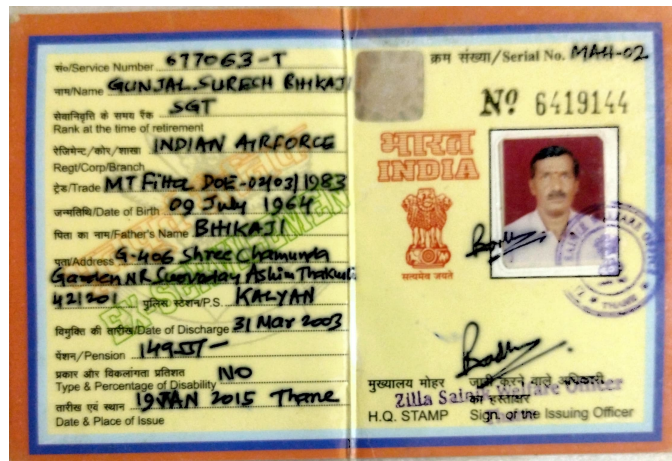 सं०/Service Number 677063-T
नाम/Name GUNJAL SURESH BHIKAJI
सेवानिवृति के समय रैंक SGT
Rank at the time of retirement
रेजिमेन्ट/कोर/शाखा INDIAN AIRFORCE
Regt/Corp/Branch
ट्रेड/Trade MT Fitter DOE-02/03/1983
जन्मतिथि/Date of Birth 09 July 1964
पिता का नाम/Father's Name BHIKAJI
पता/Address G-406 Shree Chamunda
Garden NR
421201 पुलिस स्टेशन/P.S. KALYAN
विमुक्ति की तारीख/Date of Discharge 31 Mar 2003
पेंशन/Pension
प्रकार और विकलांगता प्रतिशत NO
Type & Percentage of Disability
तारीख एवं स्थान 19 JAN 2015 Thane
Date & Place of Issue
EX-SERVICEMEN
क्रम संख्या/Serial No. MAH-02
Nº 6419144
भारत
INDIA
सत्यमेव जयते
मुख्यालय मोहर जारी करने वाले अधिकारी
के हस्ताक्षर
Zilla Sainik Welfare Officer
H.Q. STAMP Sign. of the Issuing Officer